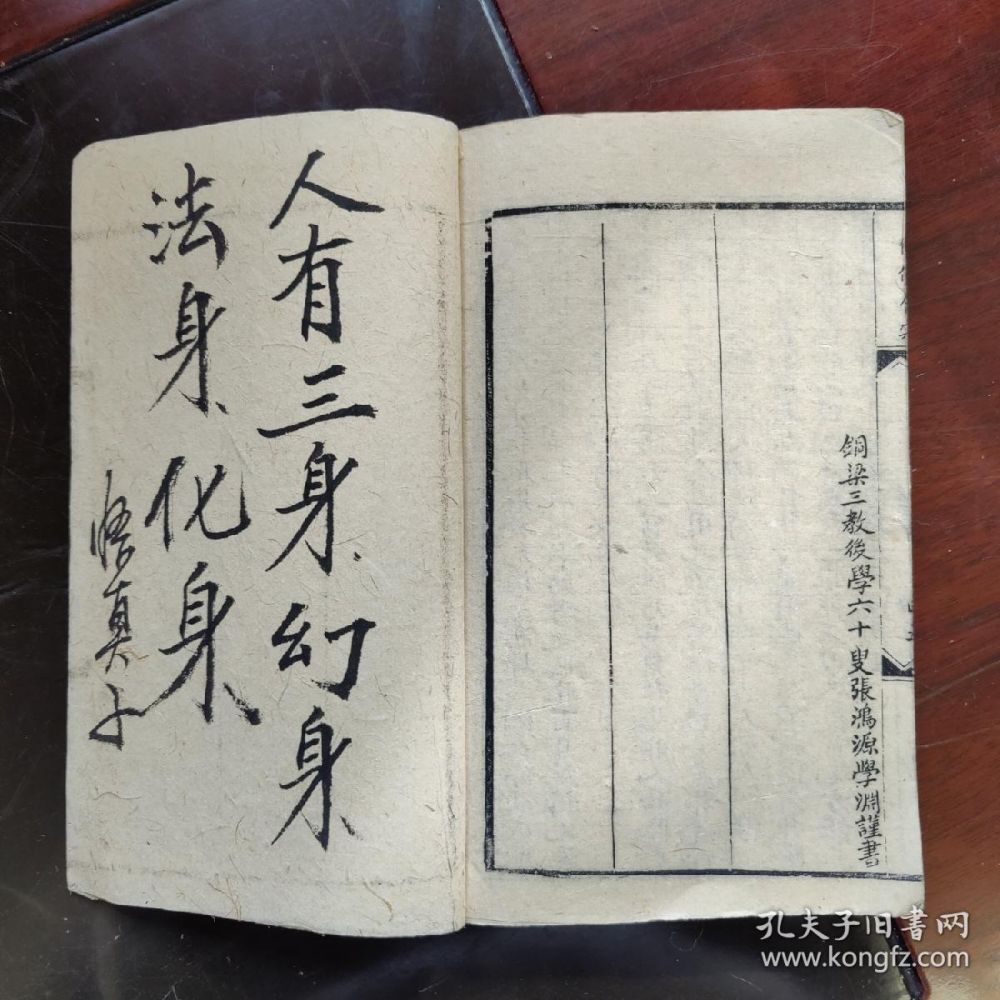 銅梁三教後學六十叟張鴻源學淵謹書
人有三身幻身
法身化身
悟真子
孔夫子旧书网
www.kongfz.com